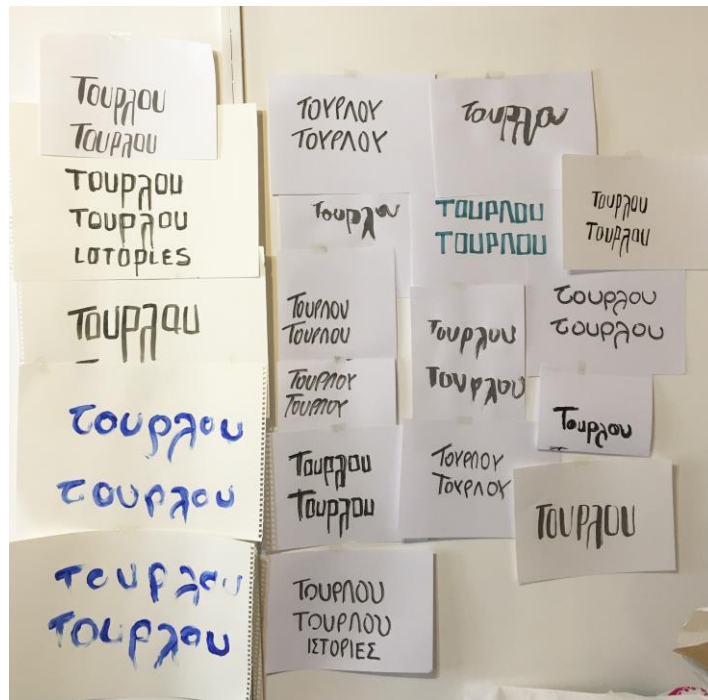 Τουρλου
Τουρλου
Τουρλου
Τουρλου
ιστορίες
Τουρλου
τουρλου
τουρλου
τουρλου
Τουρλου
ΤΟΥΡΛΟΥ
ΤΟΥΡΛΟΥ
Τουρλου
Τουρλου
ΤΟUΡΛΟU
ΤΟUΡΛΟU
Τουρλου
Τουρλου
ΤΟυΡΛΟυ
ΤΟυΡΛΟυ
Τουρλου
Τουρλου
τουρλου
τουρλου
ΤΟΥΡΛΟΥ
ΤΟΥΡΛΟΥ
Τουρλου
Τουρλου
Τουρλου
ΤΟΥΡΛΟΥ
ΤΟΥΡΛΟΥ
Τουρλου
ΤΟυΡΛΟυ
ΤΟυΡΛΟυ
ΙΣΤΟΡΙΕΣ